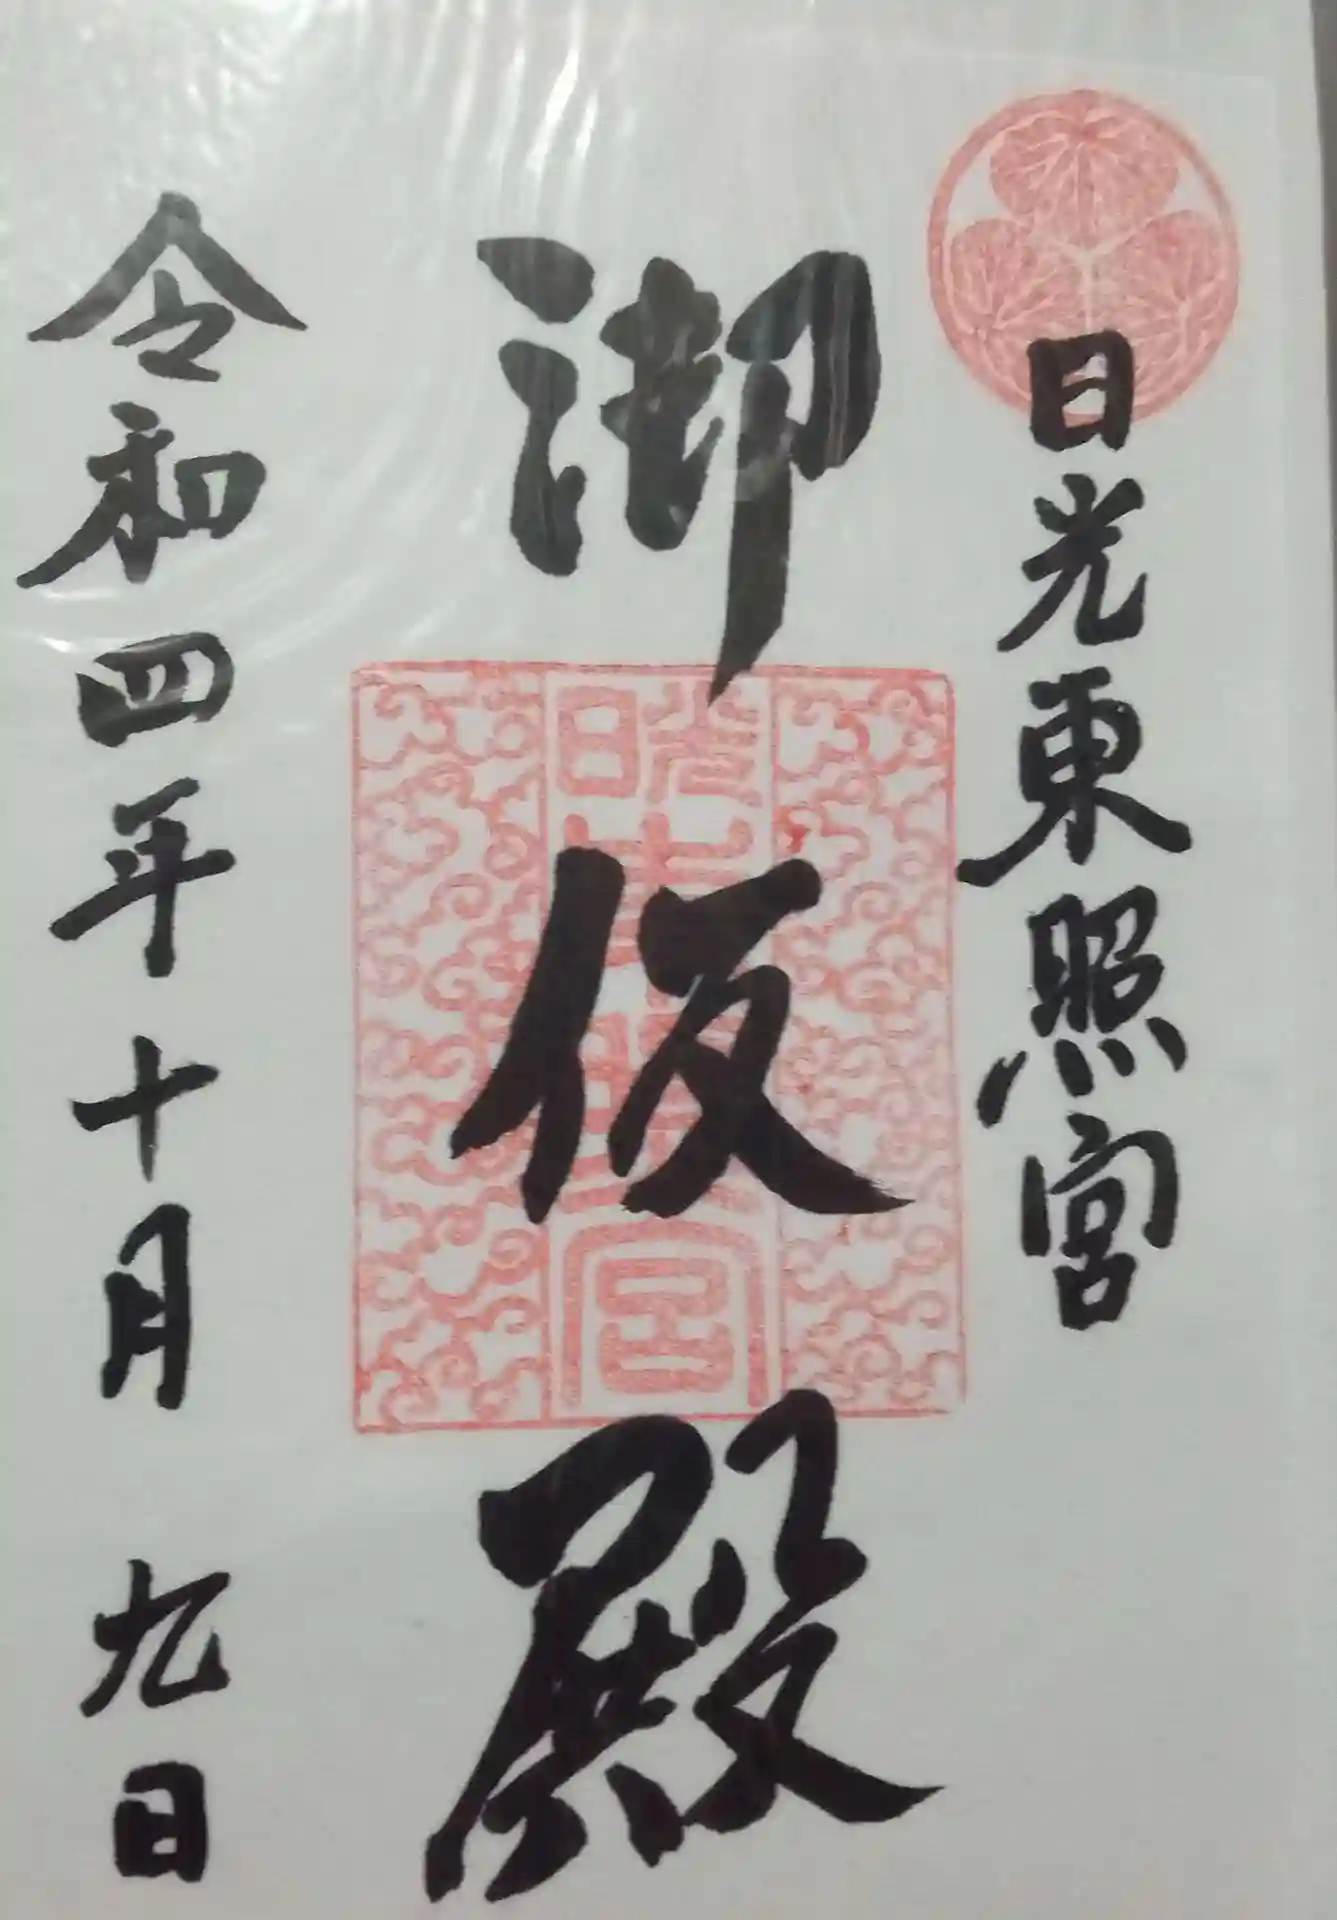 日光東照宮
御仮殿
日光東照宮
令和四年十月九日